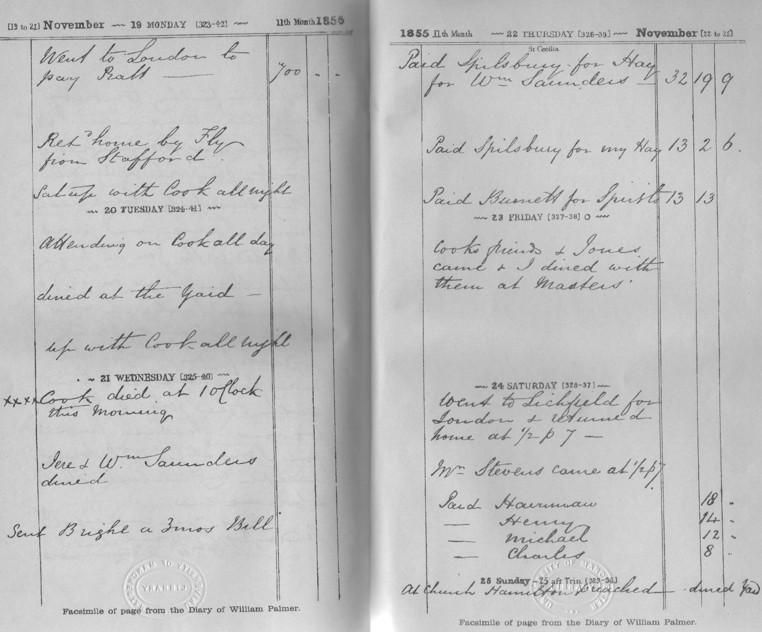 [13 to 21] November — 19 MONDAY [323-42] — 11th Month 1855
Went to London to
pay Pratt — 700 " "
Retd home by Fly
from Stafford.
Sat up with Cook all night
— 20 TUESDAY [324-41] —
Attending on Cook all day
dined at the Yard —
up with Cook all night
— 21 WEDNESDAY [325-40] —
xxxx Cook died at 1 oClock
this Morning
Jere & Wm Saunders
dined
Sent Bright a 3mos Bill
UNIVERSITY OF MANCHESTER LIBRARY
Facsimile of page from the Diary of William Palmer.
1855 11th Month — 22 THURSDAY [326-39] — November [22 to 25]
St Cecilia
Paid Spilsbury for Hay
for Wm Saunders — 32 19 9
Paid Spilsbury for my Hay 13 2 6.
Paid Burnett for Spirits 13 13
— 23 FRIDAY [327-38] O —
Cooks friends & Jones
came & I dined with
them at Masters'
— 24 SATURDAY [328-37] —
Went to Lichfield for
London & returned
home at 1/2 p 7 —
Mr Stevens came at 1/2 p 7.
Paid 18 "
— Henry 14 "
— Michael 12 "
— Charles 8 "
25 Sunday — 25 aft Trin [329-36]
At Church Hamilton preached - dined Yard
UNIVERSITY OF MANCHESTER LIBRARY
Facsimile of page from the Diary of William Palmer.